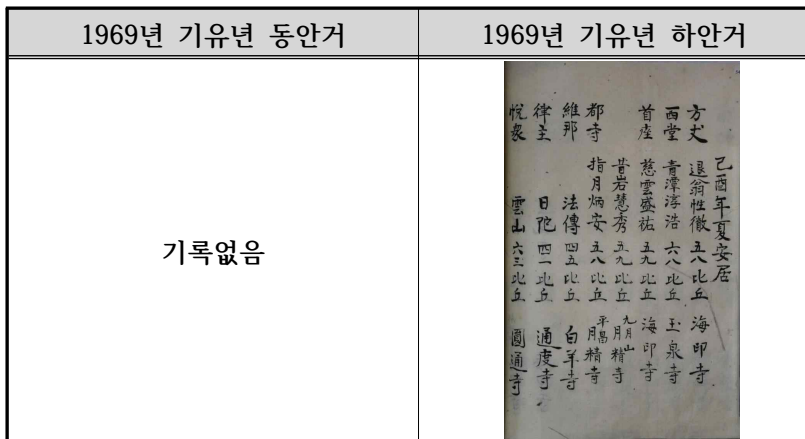 1969년 기유년 동안거
1969년 기유년 하안거
기록없음
己酉年夏安居
方丈 退翁性徹 五八 比丘 海印寺
西堂 青潭淳浩 六八 比丘 玉泉寺
首座 慈雲盛祐 五九 比丘 海印寺
昔岩慧秀 五九 比丘 九月山 月精寺
都寺 指月炳安 五八 比丘 平昌 月精寺
維那 法傳 四五 比丘 白羊寺
律主 日陀 四一 比丘 通度寺
悅衆 雲山 六三 比丘 圓通寺